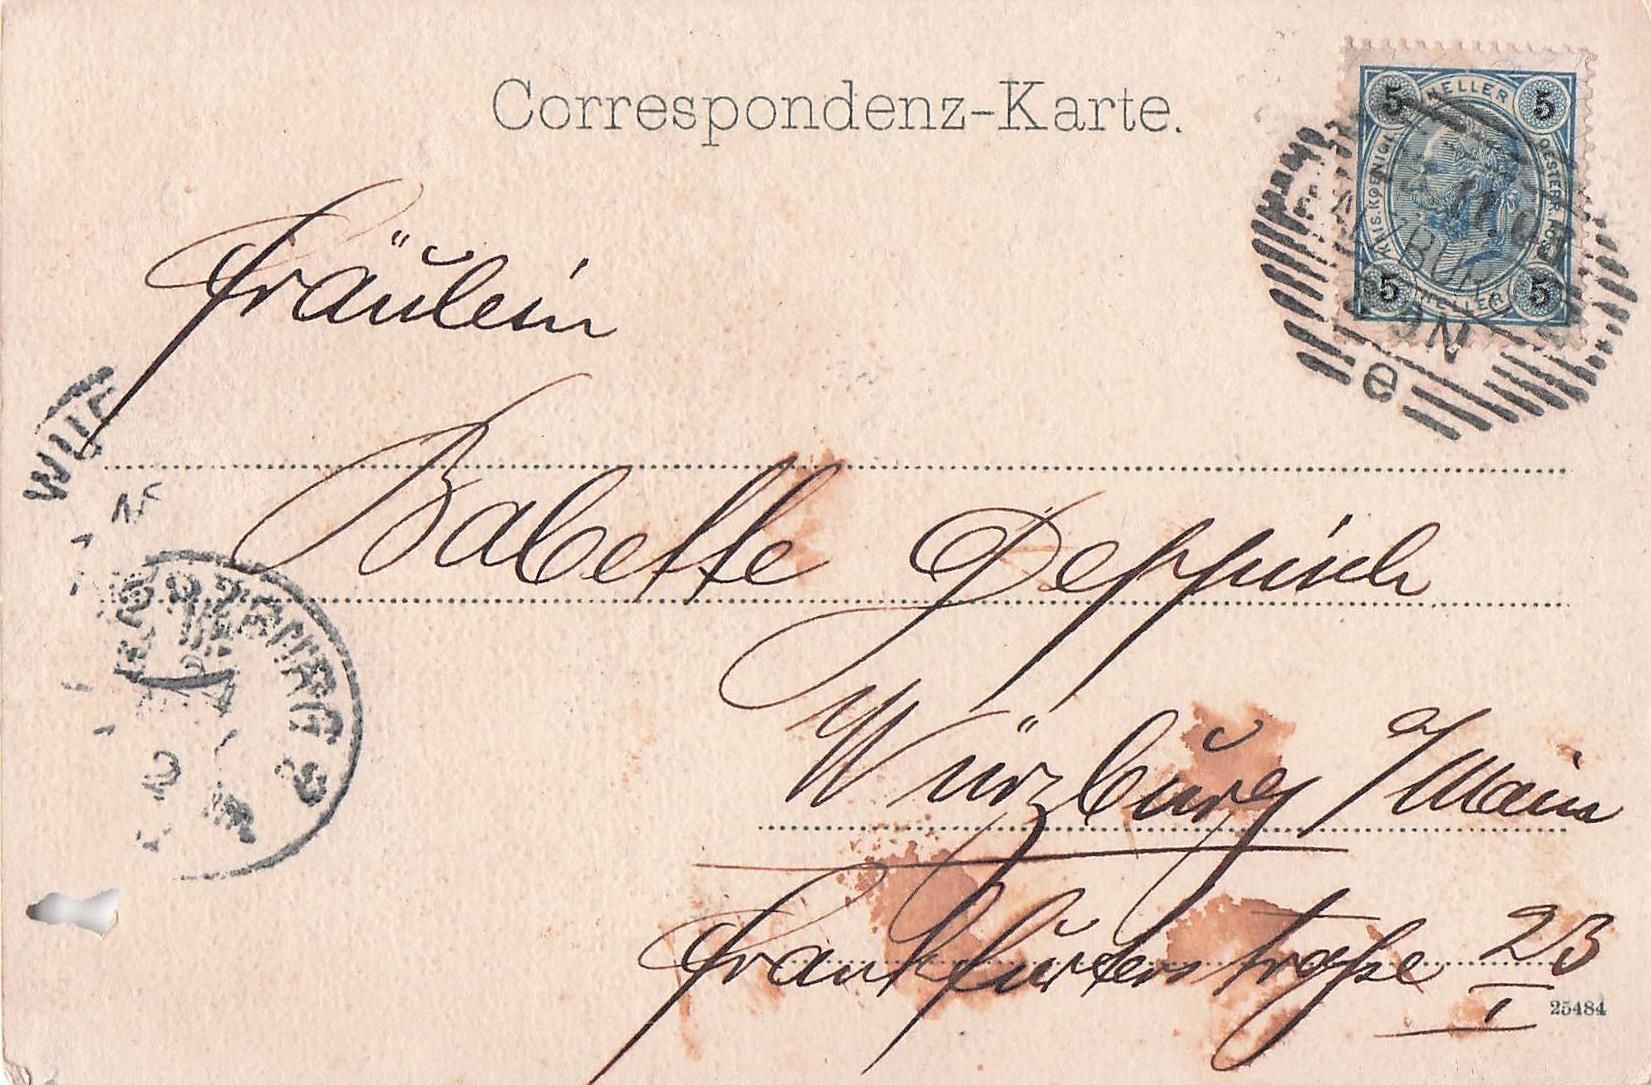 Correspondenz-Karte.
5 HELLER 5
KAIS. KOENIGL. OESTERR. POST
5 HELLER 5
e
Fräulein
Babette Deppisch
Würzburg a/Main
Frankfurterstraße 23
I
WÜRZBURG 2
25484